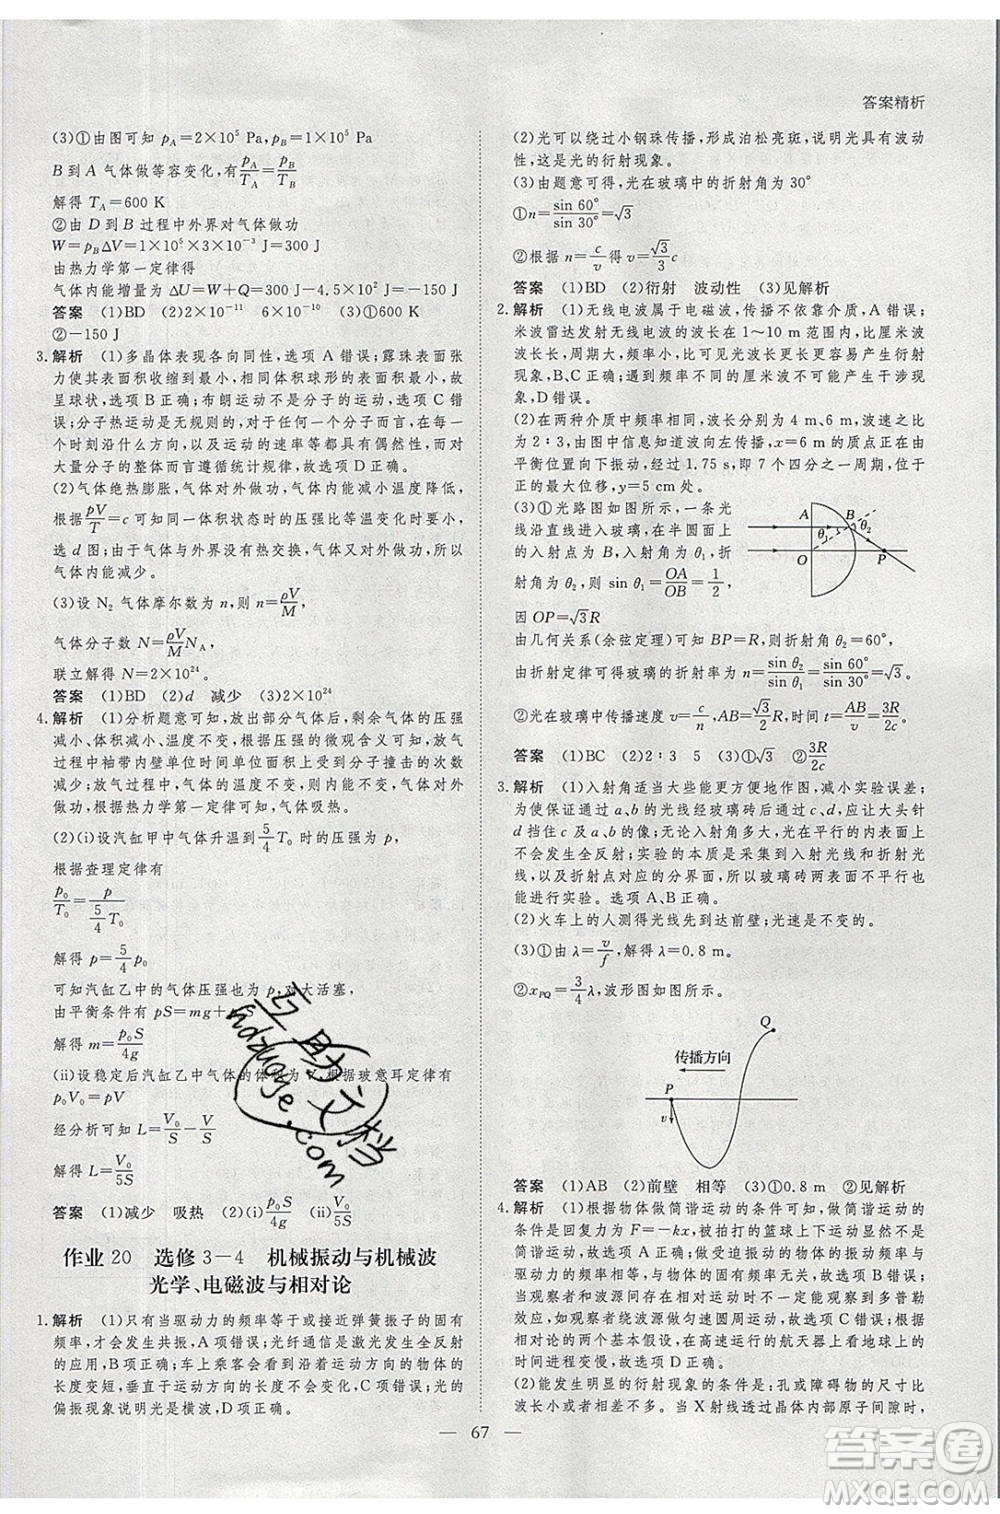 答案精析
(3)①由图可知 p_A=2×10⁵ Pa,p_B=1×10⁵ Pa
B 到 A 气体做等容变化,p_A/T_A=p_B/T_B
解得 T_A=600 K
②由 D 到 B 过程中外界对气体做功
W=p_BΔV=1×10⁵×3×10⁻³ J=300 J
由热力学第一定律得
气体内能增量为 ΔU=W+Q=300 J-4.5×10² J=-150 J
答案 (1)BD (2)2×10⁻¹¹ 6×10⁻¹⁰ (3)①600 K
②-150 J
3.解析 (1)多晶体表现各向同性,选项 A 错误;露珠表面张
力使其表面积收缩到最小,相同体积球形的表面积最小,故
呈球状,选项 B 正确;布朗运动不是分子的运动,选项 C 错
误;分子热运动是无规则的,对于任意一个分子而言,在每一
个时刻沿什么方向,以及运动的速率等都具有偶然性,但对
大量分子的整体而言遵循统计规律,选项 D 正确。
(2)气体绝热膨胀,气体对外做功,气体内能减少温度降低,
根据pV/T=c 可知同一体积状态时的压强比等温变化小,故
选 d 图;由于气体与外界没有热交换,气体对外做功,所以
气体内能减少。
(3)设 N₂ 气体摩尔数为 n,则 n=ρV/M
气体分子数 N=ρV/M N_A
联立解得 N=2×10²⁴
答案 (1)BD (2)d 减少 (3)2×10²⁴
4.解析 (1)分析题意可知,放出部分气体后,剩余气体的压强
减小、体积减小、温度不变,根据压强的微观含义可知,放气
过程中袖带内壁单位时间单位面积上受到分子撞击的次数
减少;放气过程中温度不变,则气体的内能不变,气体对外
做功,根据热力学第一定律可知,气体吸热。
(2)(i)设汽缸甲中气体升温到5/4 T₀ 时的压强为 p,
根据查理定律有
p₀/T₀=p/(5/4 T₀)
解得 p=5/4 p₀
可知汽缸乙中气体压强也为 p,对大活塞,
由平衡条件有 pS=mg+p₀S
解得 m=p₀S/4g
(ii)设稳定后汽缸乙中气体的体积为 V,根据玻意耳定律有
p₀V₀=pV
经分析可知 L=V₀/S-V/S
解得 L=V₀/5S
答案 (1)减少 吸热 (2)(i)p₀S/4g (ii)V₀/5S
作业 20 选修 3-4 机械振动与机械波
光学、电磁波与相对论
1.解析 (1)只有当驱动力的频率等于或接近弹簧振子的固有
频率,才会产生共振,A 项错误;光纤通信是激光发生全反射
的应用,B 项正确;车上乘客会看到沿着运动方向的物体的
长度变短,垂直于运动方向的长度不变,C 项错误;光的
偏振现象说明光是横波,D 项正确。
(2)光可以绕过小钢珠传播,形成泊松亮斑,说明光具有波动
性,这是光的衍射现象。
(3)由题意可得,光在玻璃中的折射角为 30°
①n=sin 60°/sin 30°=√3
②根据 n=c/v得 v=√3/3 c
答案 (1)BD (2)衍射 波动性 (3)见解析
2.解析 (1)无线电波属于电磁波,传播不依靠介质,A 错误;
米波雷达发射无线电波的波长在 1~10 m 范围内,比厘米
波波长长,周期大,频率小,比可见光波长长,更容易衍射,
因此 B、C 正确;两列频率不同的厘米波不可能产生干涉现
象,D 错误。
(2)在两种介质中频率相同,波长分别为 4 m、6 m,波速之比
为 2∶3,由图中信息知道波向左传播,x=6 m 的质点正在由
平衡位置向下振动,经过 1.75 s,即 7 个四分之一周期,位
于正的最大位移处,y=5 cm 处。
(3)①光路图如图所示,一条光
线沿直线进入玻璃,在半圆面上
的入射点为 B,入射角为 θ₁,折
射角为 θ₂,则 sin θ₁=OA/OB=1/2
因 OP=√3R
由几何关系(余弦定理)可知 BP=R,则折射角 θ₂=60°,
由折射定律可得玻璃的折射率为 n=sin θ₂/sin θ₁=sin 60°/sin 30°=√3,
②光在玻璃中传播速度 v=c/n,AB=√3/2 R,时间 t=AB/v=3R/2c
A
B
θ₁
θ₂
O
P
答案 (1)BC (2)2∶3 5 (3)①√3 ②3R/2c
3.解析 (1)入射角应适当大些更方便地作图,减小实验误差;
为使保证通过 a、b 的光线经玻璃砖后通过 c、d,应让大头针
d 挡住 c 和 a、b 的像;无论入射角多大,光在平行的内表面
不会发生全反射;实验的本质是采集到入射光线和折射光
线,它们相对应的分界面,所以,玻璃砖两界面不平行时仍
能进行实验。选项 A、B 正确。
(2)火车上的人测得光线先到达前壁;光速是不变的。
(3)①由 λ=v/f,解得 λ=0.8 m。
②x_PQ=3/4 λ,波形图如图所示。
Q
传播方向
P
v
答案 (1)AB (2)前壁 相等 (3)①0.8 m ②见解析
4.解析 (1)根据物体做简谐运动的条件可知,物体做简谐运动的
条件是回复力为 F=-kx,被拍打的篮球上下运动不是
简谐运动,选项 A 错误;物体做受迫振动的频率等于驱动力
的频率,与固有频率无关,选项 B 正确;根据多普勒效应可
知,当观察者和波源间存在相对运动时一定能观察到多普勒
效应,如观察者绕波源做匀速圆周运动,选项 C 错误;根据
相对论的两个基本假设,在高速运行的航天器上看地球上的
时间进程变慢,故选项 D 正确。
(2)能发生明显的衍射现象的条件是:孔或障碍物的尺寸比
波长小或者相差不多。当 X 射线打在晶体内部原子间隙上
67
互助文档
hdzuoye.com
答案卷
MXQE.COM